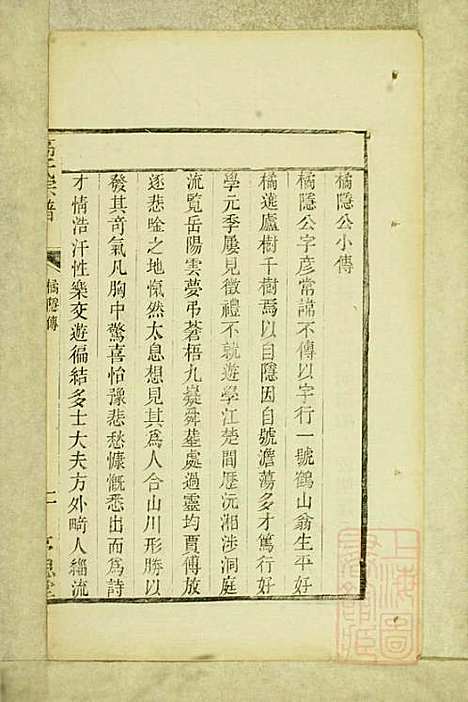 橘隱公小傳
橘隱公字彥常諱不傳以字行一號鶴山翁生平好
橘遶廬樹千樹焉以自隱因自號澹蕩多才篤行好
學元季屢見徵禮不就遊學江楚間歷沅湘涉洞庭
流覧岳陽雲夢弔蒼梧九嶷舜墓處過靈均賈傅放
逐悲唫之地愾然太息想見其爲人合山川形勝以
發其奇氣凡胸中驚喜怡豫悲愁慷慨悉出而爲詩
才情浩汗性樂交遊徧結多士大夫方外畸人緇流
宗譜
橘隱傳
上海圖